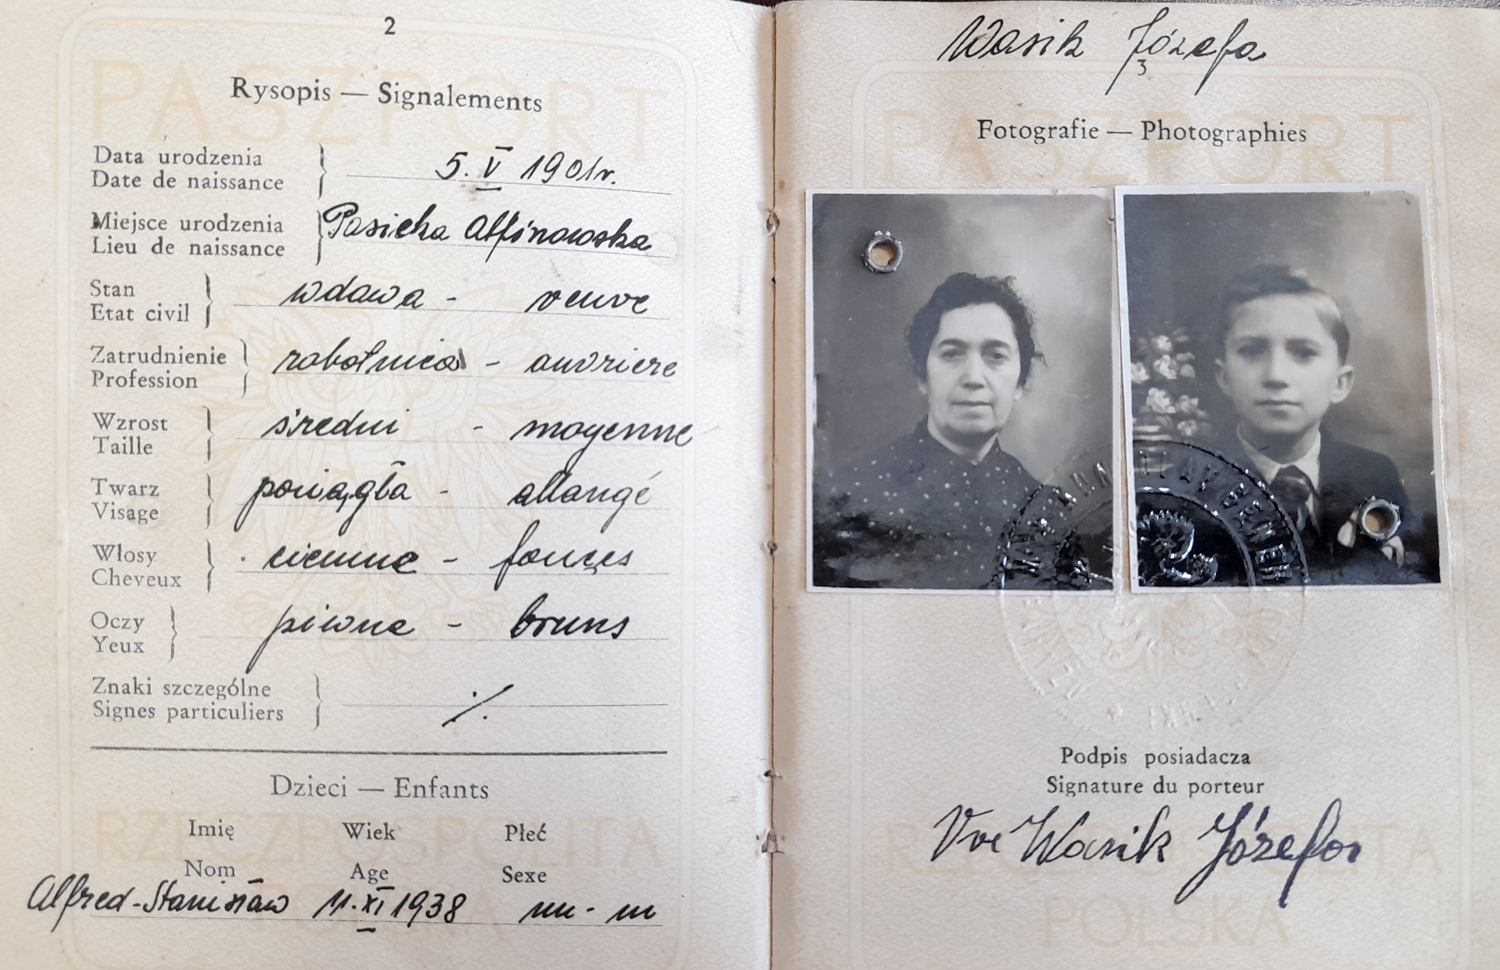 2
Rysopis — Signalements
Data urodzenia
Date de naissance
5. V 1901r.
Miejsce urodzenia
Lieu de naissance
Pasieka Otfinowska
Stan
Etat civil
wdowa - veuve
Zatrudnienie
Profession
robotnica - ouvriere
Wzrost
Taille
średni - moyenne
Twarz
Visage
pociągła - allongé
Włosy
Cheveux
ciemne - foncés
Oczy
Yeux
piwne - bruns
Znaki szczególne
Signes particuliers
·/.
Dzieci — Enfants
Imię Wiek Płeć
Nom Age Sexe
Alfred-Stanisław 11. XI 1938 m - m
Wasik Józefa
3
Fotografie — Photographies
Podpis posiadacza
Signature du porteur
Vve Wasik Józefa
PASZPORT
RZECZPOSPOLITA
POLSKA
PASZPORT
RZECZPOSPOLITA
POLSKA